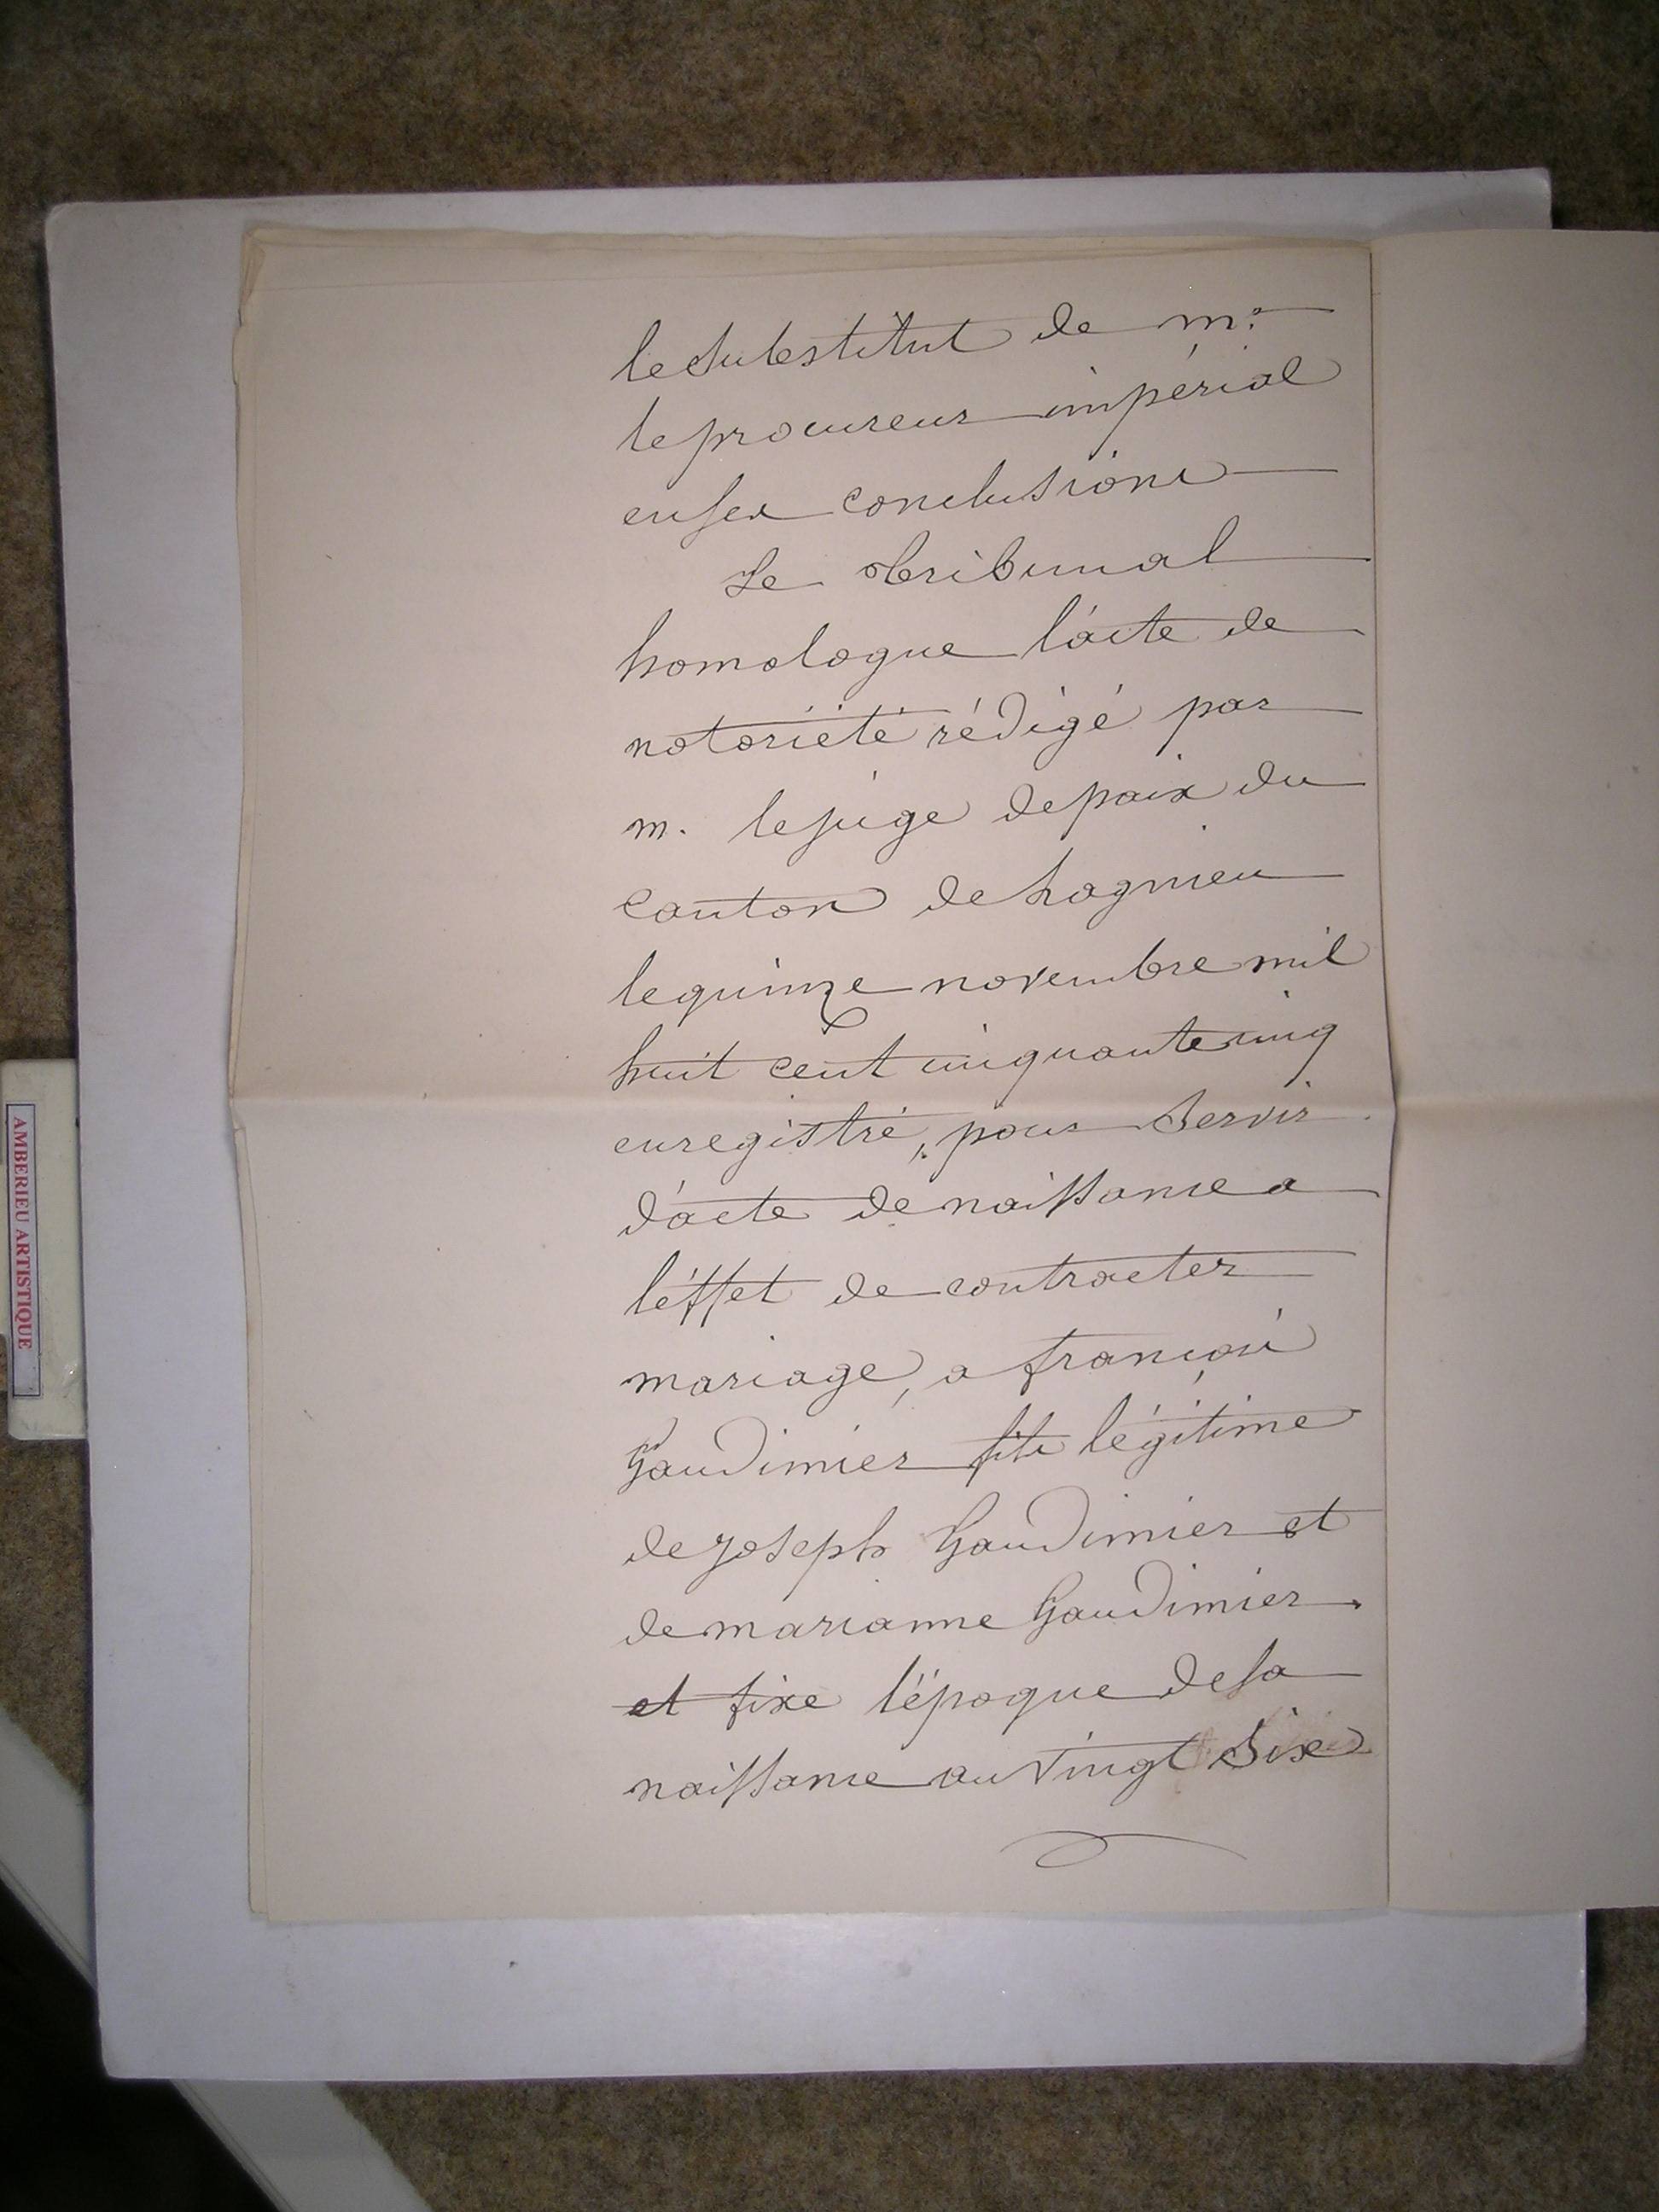 le substitut de mr
le procureur impérial
en ses conclusions
Le tribunal
homologue l'acte de
notoriété rédigé par
m. le juge de paix du
canton de Lagnieu
le quinze novembre mil
huit cent cinquante cinq
enregistré, pour servir
d'acte de naissance a
l'effet de contracter
mariage, a françois
Gaudimier fils légitime
de joseph Gaudimier et
de marianne Gaudimier
et fixe l'époque de sa
naissance au vingt six
AMBERIEU ARTISTIQUE